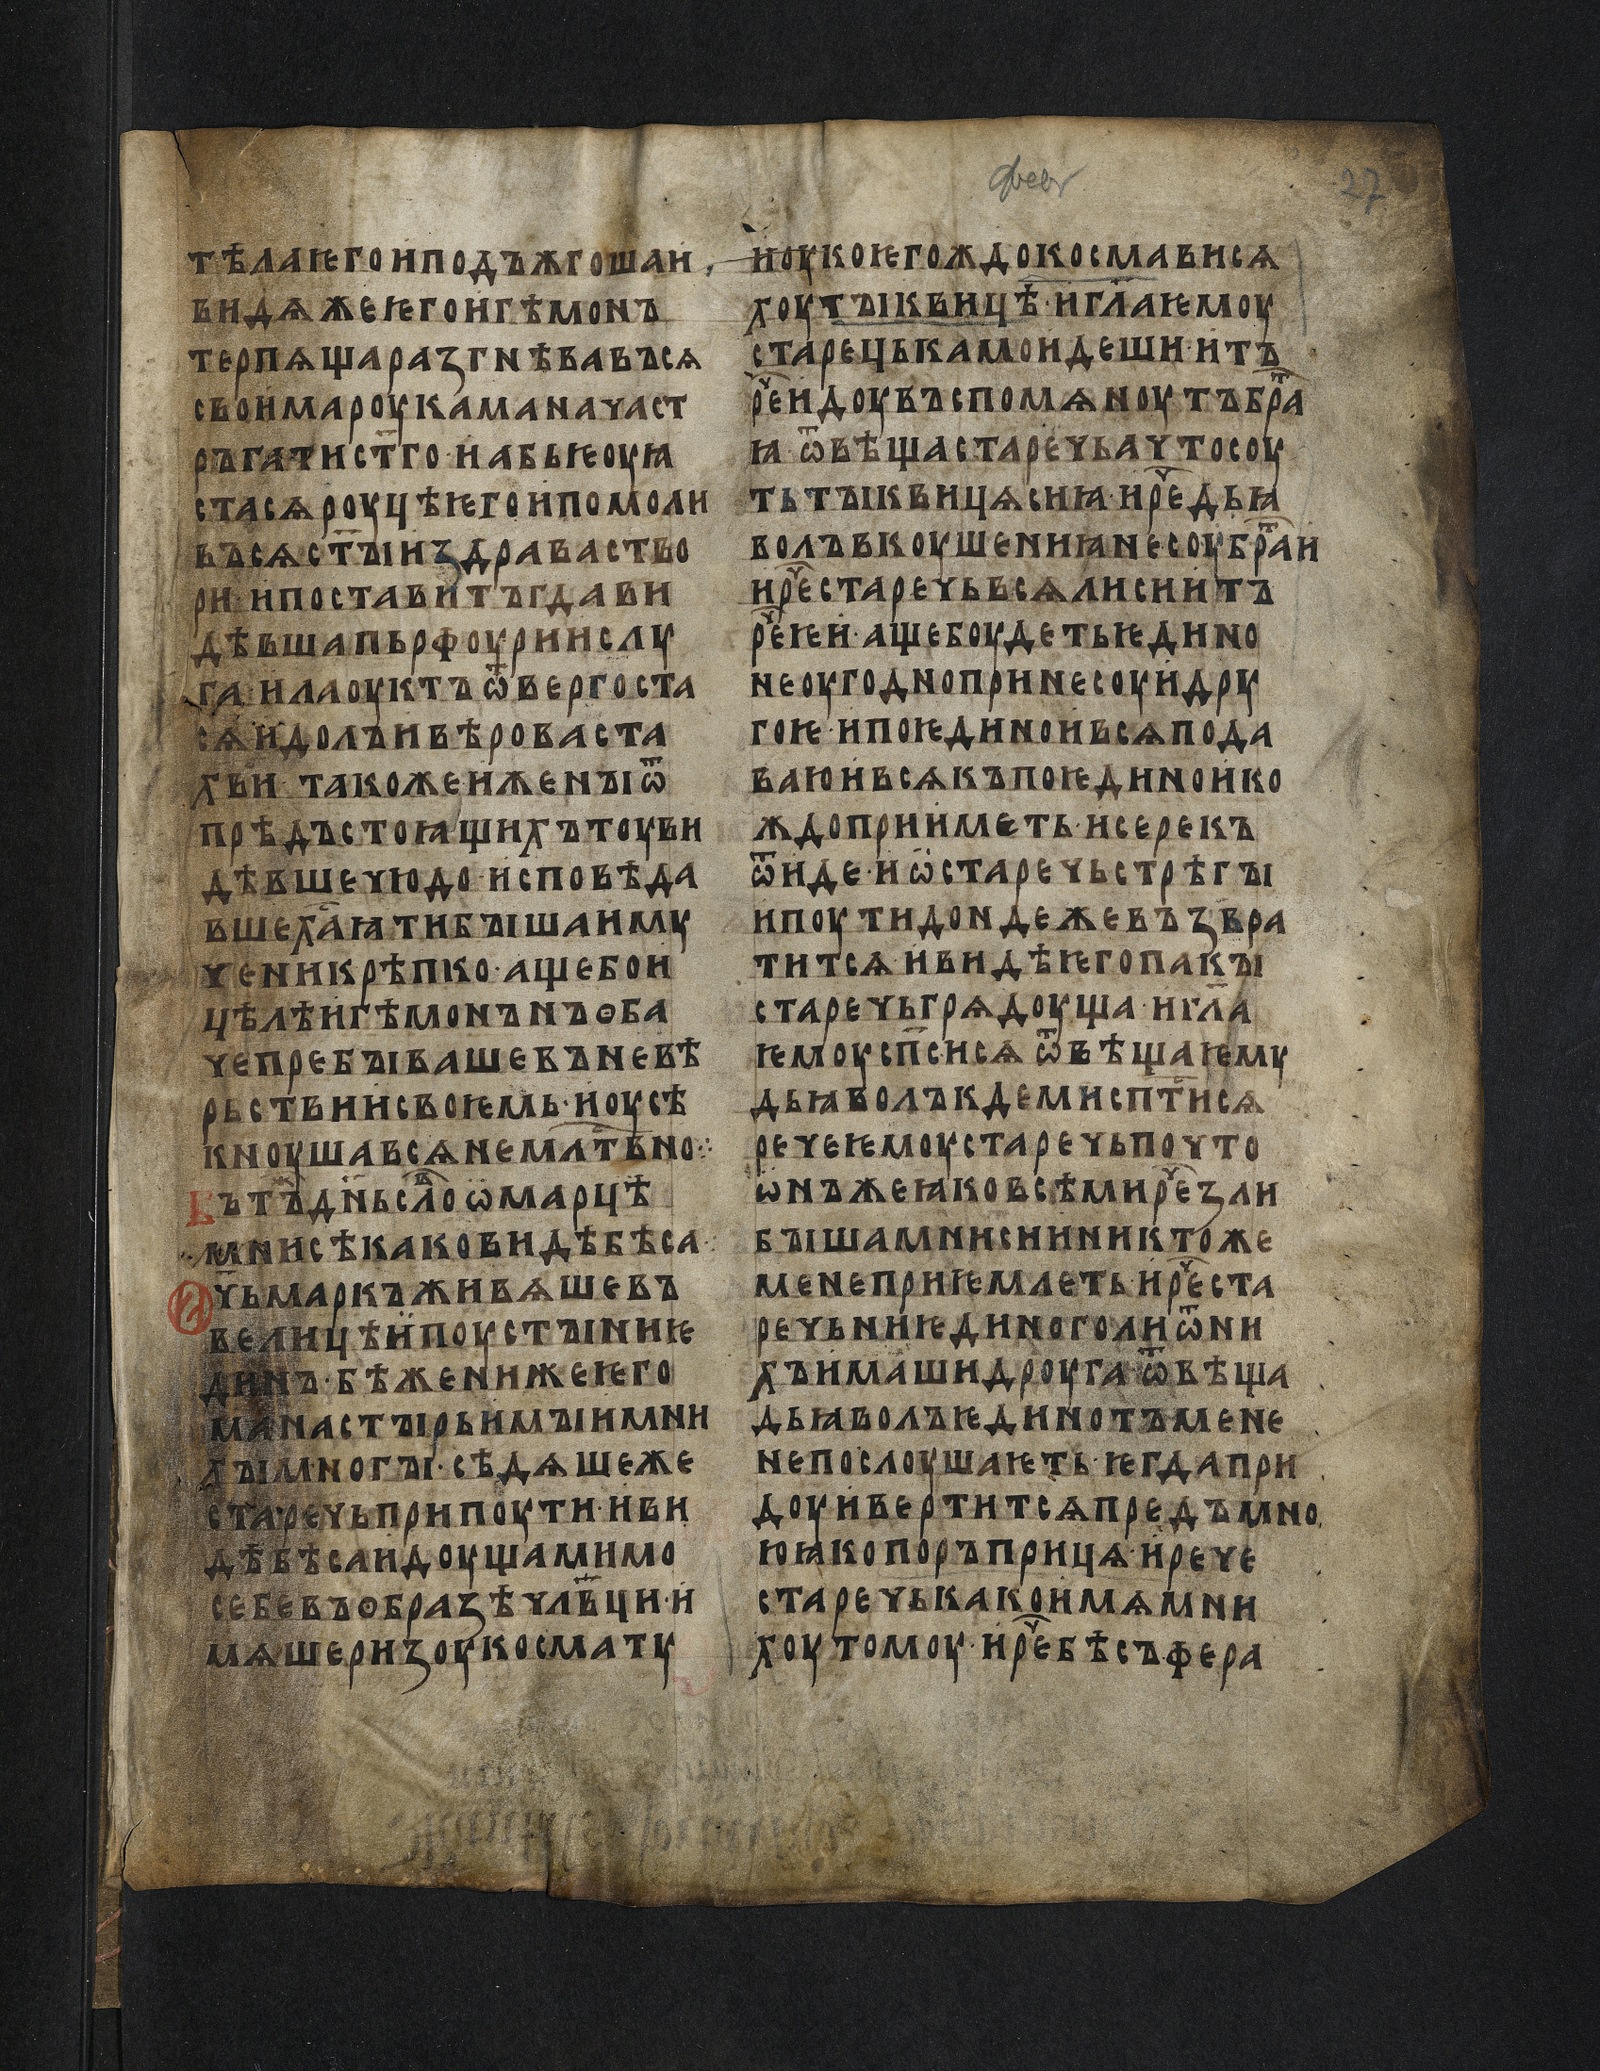 феvr
27
тѣлаѥгоиподъжгошаи
видѧжеѥгоигѣмонъ
терпѧщаразгнѣвавъсѧ
своимарꙋкаманачаст
ръгатист҃го·иабьѥꙋꙗ
стасѧрꙋцѣѥгоипомоли
въсѧст҃ꙑиздраваство
ри·ипоставитъгдави
дѣвшапьрфꙋриислꙋ
га·илаꙋктъѿвергоста
сѧидолъивѣроваста
х҃ви такожеиженꙑѿ
прѣдъстоꙗщихътꙋви
дѣвшечюдо·исповѣда
вшех҃аꙗтибꙑшаимꙋ
ченикрѣпко·ащебои
цѣлѣигѣмонънъѳба
чепребꙑвашевъневѣ
рьствиисвоѥмь·иꙋсѣ
кнꙋшавсѧнемлт҃вно:·
Вътъдн҃ьслⷡ҇оѡмарцѣ
мнисѣкаковидѣбѣса:
Ѡч҃ьмаркъживѧшевъ
велицѣипꙋстꙑниѥ
динъ·бѣженижеѥго
манастꙑрьимꙑимни
хꙑмногꙑ·сѣдѧщеже
старечьприпꙋти·иви
дѣбѣсаидꙋщамимо
себевъѳбразѣчл҃вци·и
мѧшеризꙋкосматꙋ
иꙋкоѥгождокосмависѧ
хꙋтꙑквицѣ·игл҃аѥмꙋ
старецькамоидеши·итъ
реⷱ҇идꙋвъспомѧнꙋтъбраⷮ
ꙗ·ѿвѣщастаречьачтосꙋ
тьтꙑквицѧсиꙗ·иреⷱ҇дьꙗ
волъвкꙋшениꙗнесꙋбраⷮи
иреⷱ҇старечьвсѧлисиитъ
реⷱ҇ѥи·ащебꙋдетьѥдино
неꙋгоднопринесꙋидрꙋ
гоѥ·ипоѥдиноивсѧпода
ваюивсѧкъпоѥдинойко
ждоприиметь·исерекъ
ѿиде·иѡстаречьстрѣгꙑ
ипꙋтидондежевъзвра
титсѧ·ивидѣѥгопакꙑ
старечьгрѧдꙋща·игл҃а
ѥмꙋсп҃сисѧѿвѣщаѥмꙋ
дьꙗволъкдемисп҃тисѧ
речеѥмꙋстаречьпочто
ѡнъжеꙗковсѣмиреⷱ҇зли
бꙑшамнисниниктоже
менеприѥмлеть·иреⷱ҇ста
речьниѥдиноголиѿни
хъимашидрꙋгаѿвѣща
дьꙗволъѥдинотъмене
непослꙋшаѥть·ѥгдапри
дꙋивертитсѧпредъмно
юꙗкопоръприцѧ·ирече
старечькакоимѧмни
хꙋтомꙋ·иреⷱ҇бѣсъ·фера